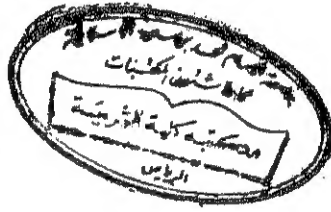 جامعة الإمام محمد بن سعود الإسلامية
عمادة شئون المكتبات
مكتبة كلية الشريعة
الرياض